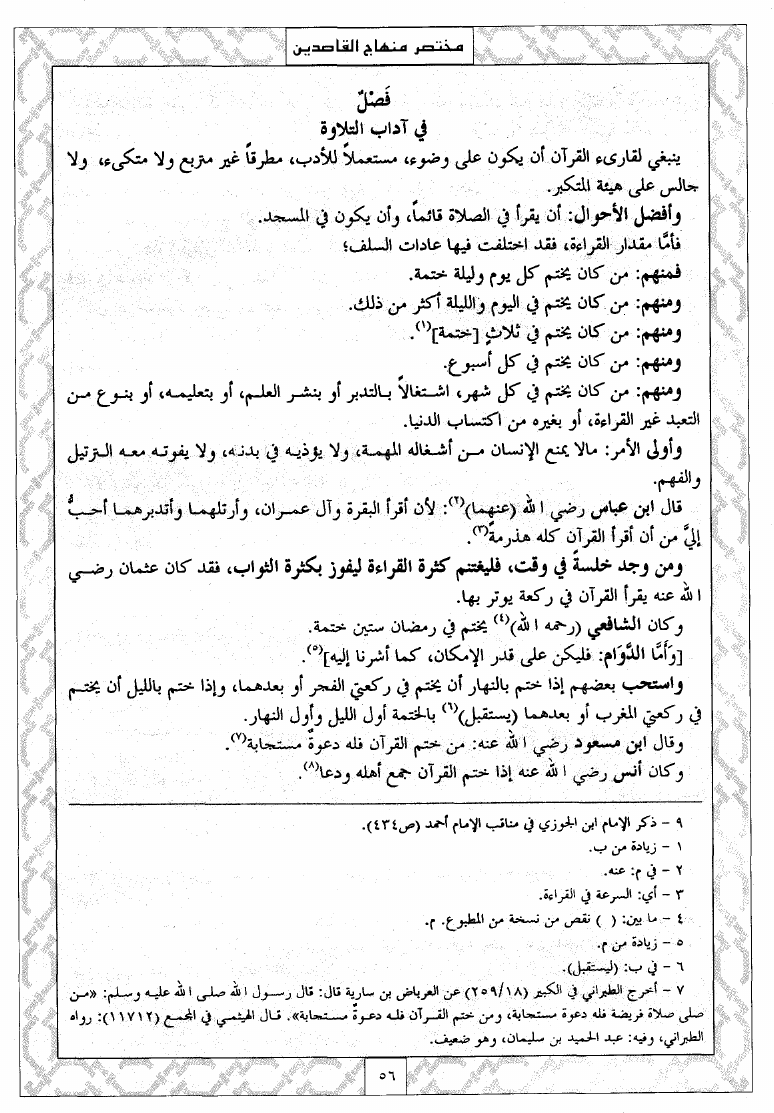 مختصر منهاج القاصدين
فَصْلٌ
في آداب التلاوة
ينبغي لقارىء القرآن أن يكون على وضوء، مستعملاً للأدب، مطرقاً غير متربع ولا متكىء، ولا
جالس على هيئة المتكبر.
وأفضل الأحوال: أن يقرأ في الصلاة قائماً، وأن يكون في المسجد.
فأمَّا مقدار القراءة، فقد اختلفت فيها عادات السلف؛
فمنهم: من كان يختم كل يوم وليلة ختمة.
ومنهم: من كان يختم في اليوم والليلة أكثر من ذلك.
ومنهم: من كان يختم في ثلاثٍ [ختمة](١).
ومنهم: من كان يختم في كل أسبوع.
ومنهم: من كان يختم في كل شهر، اشتغالاً بالتدبر أو بنشر العلم، أو بتعليمه، أو بنوع من
التعبد غير القراءة، أو بغيره من اكتساب الدنيا.
وأولى الأمر: مالا يمنع الإنسان من أشغاله المهمة، ولا يؤذيه في بدنه، ولا يفوته معه الترتيل
والفهم.
قال ابن عباس رضي الله (عنهما)(٢): لأن أقرأ البقرة وآل عمران، وأرتلهما وأتدبرهما أحبُّ
إليَّ من أن أقرأ القرآن كله هذرمةً(٣).
ومن وجد خلسةً في وقت، فليغتنم كثرة القراءة ليفوز بكثرة الثواب، فقد كان عثمان رضي
الله عنه يقرأ القرآن في ركعة يوتر بها.
وكان الشافعي (رحمه الله)(٤) يختم في رمضان ستين ختمة.
[وَأَمَّا الدَّوَام: فليكن على قدر الإمكان، كما أشرنا إليه](٥).
واستحب بعضهم إذا ختم بالنهار أن يختم في ركعتي الفجر أو بعدهما، وإذا ختم بالليل أن يختم
في ركعتي المغرب أو بعدهما (يستقبل)(٦) بالختمة أول الليل وأول النهار.
وقال ابن مسعود رضي الله عنه: من ختم القرآن فله دعوةٌ مستجابة(٧).
وكان أنس رضي الله عنه إذا ختم القرآن جمع أهله ودعا(٨).
٩ - ذكر الإمام ابن الجوزي في مناقب الإمام أحمد (ص٤٣٤).
١ - زيادة من ب.
٢ - في م: عنه.
٣ - أي: السرعة في القراءة.
٤ - ما بين: ( ) نقص من نسخة من المطبوع. م.
٥ - زيادة من م.
٦ - في ب: (ليستقبل).
٧ - أخرج الطبراني في الكبير (٢٥٩/١٨) عن العرباض بن سارية قال: قال رسول الله صلى الله عليه وسلم: «من
صلى صلاة فريضة فله دعوة مستجابة، ومن ختم القرآن فله دعوةٌ مستجابة». قال الهيثمي في المجمع (١١٧١٢): رواه
الطبراني، وفيه: عبد الحميد بن سليمان، وهو ضعيف.
٥٦